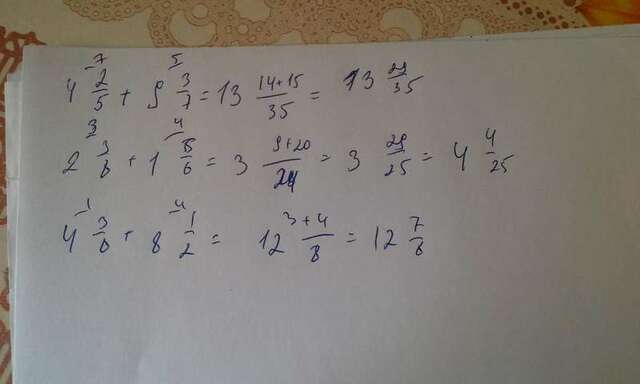 4 2/5 ⁷ + 9 3/7 ⁵ = 13 14+15/35 = 13 29/35
2 3/8 ³ + 1 5/6 ⁴ = 3 9+20/24 = 3 29/25 = 4 4/25
4 3/8 ¹ + 8 1/2 ⁴ = 12 3+4/8 = 12 7/8